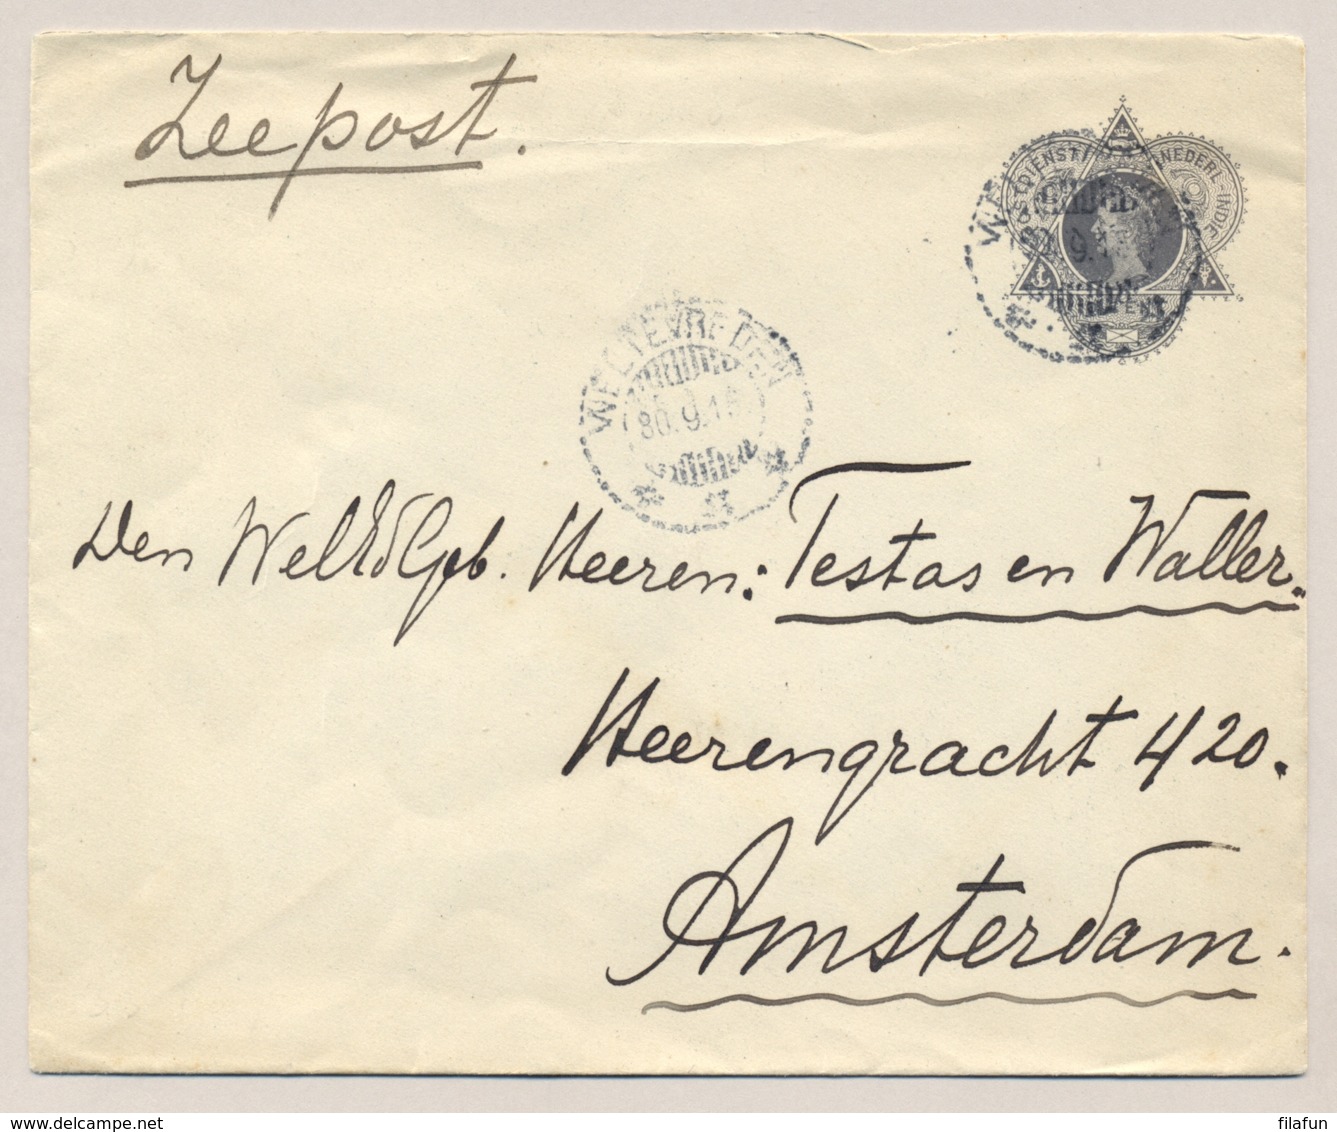 Zeepost.
POSTDIENST / NEDERL-INDIE
WELTEVREDEN
30.9.15
Den WelEdGeb. Heeren: Testas en Waller.
Heerengracht 420.
Amsterdam.
delcampe.net
filafun